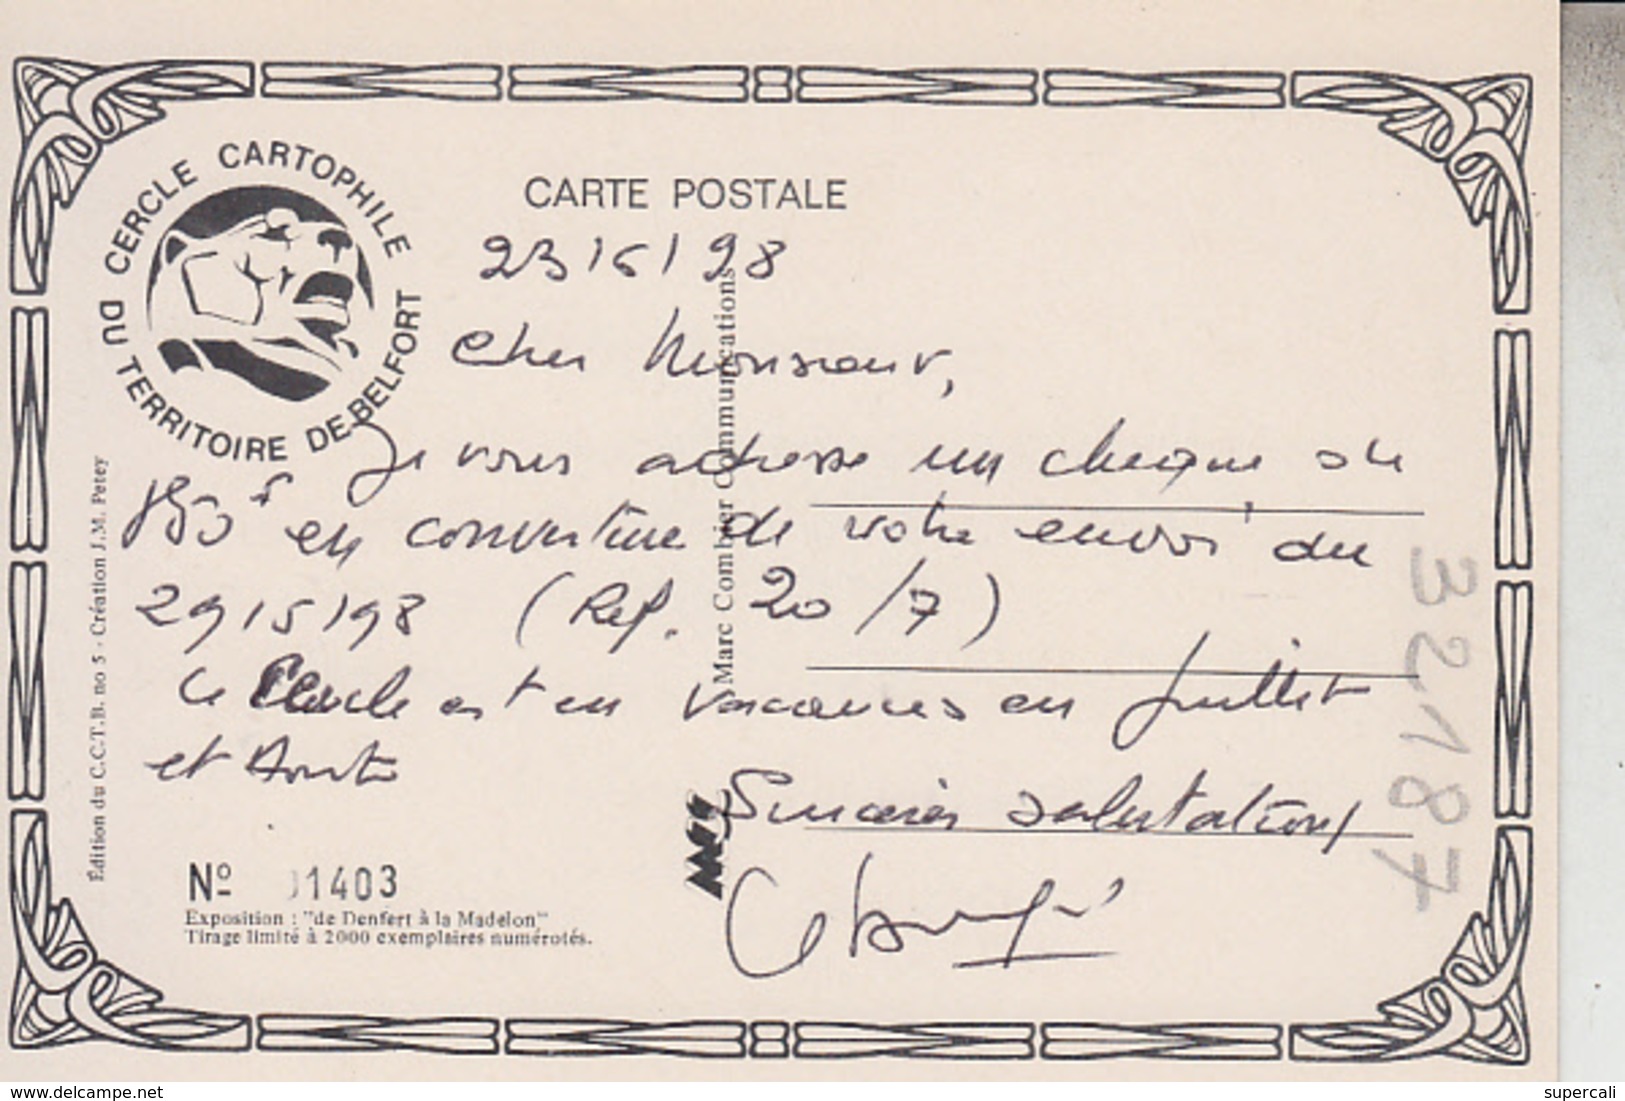 CERCLE CARTOPHILE
DU TERRITOIRE DE BELFORT
CARTE POSTALE
23/6/98
Cher Monsieur,
Je vous adresse un cheque de
en couverture de votre envoi du
29/5/98 (Ref. 20/7)
Le Cercle est en vacances en Juillet
et Août
Sincères salutations
Édition du C.C.T.B. no 5 - Création J.M. Petey
Marc Combier Communications
32187
Nº 01403
Exposition : "de Denfert à la Madelon"
Tirage limité à 2000 exemplaires numérotés.
delcampe.net
supercali